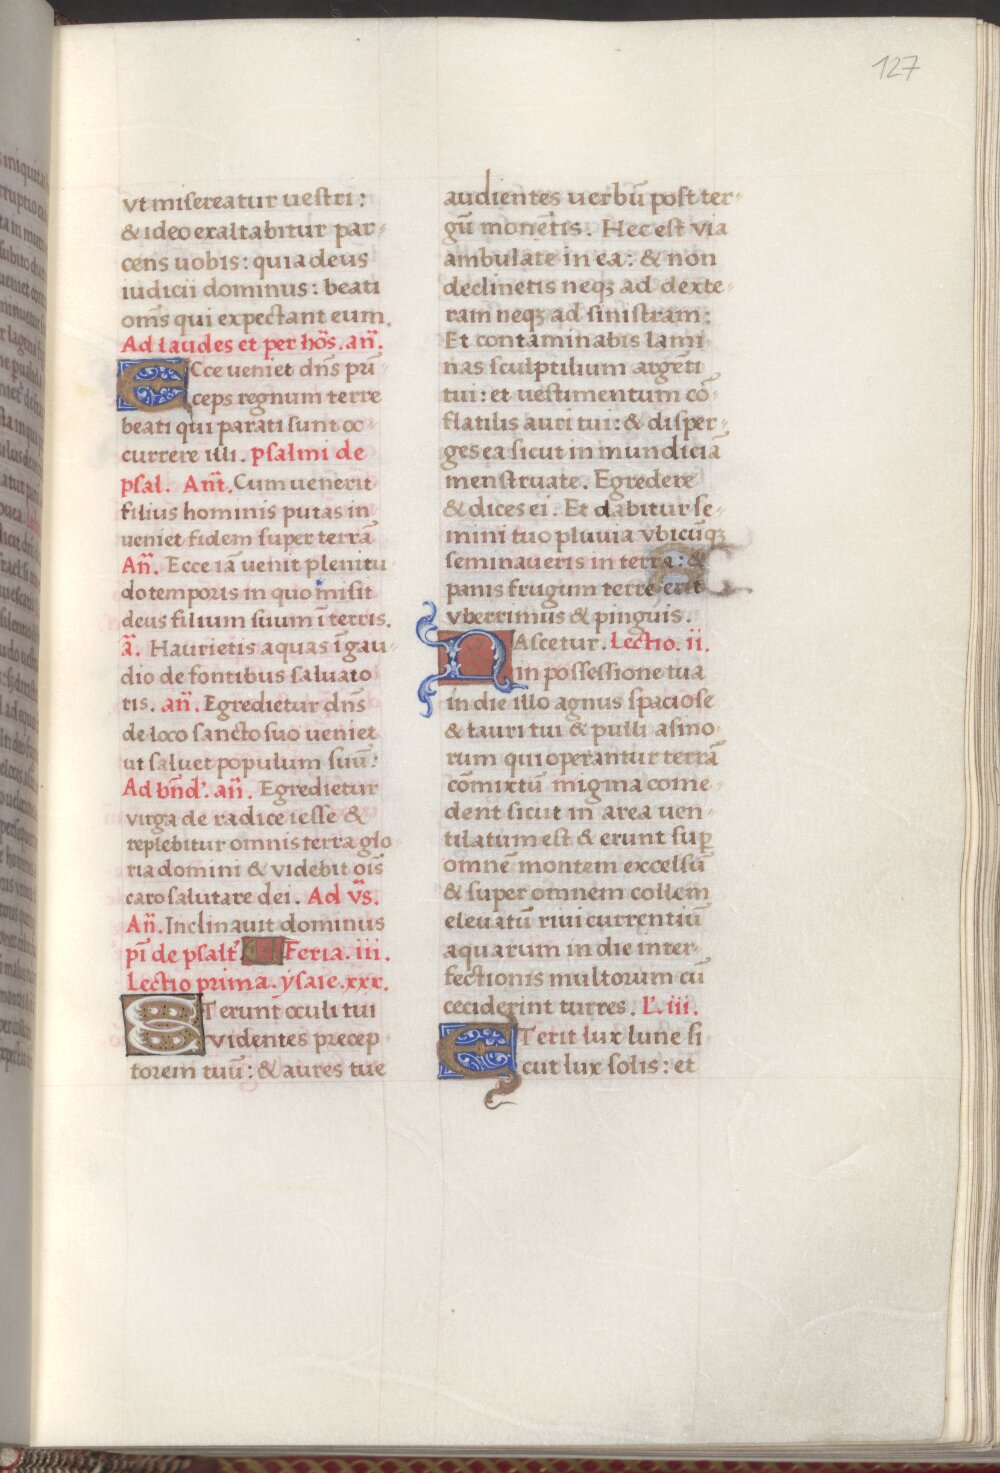 127
vt misereatur uestri:
& ideo exaltabitur par-
cens uobis: quia deus
iudicii dominus: beati
om̄s qui expectant eum.
Ad laudes et per hōs. an̄.
Ecce ueniet dn̄s prī-
ceps regnum terre
beati qui parati sunt oc-
currere illi. psalmi de
psal. Ant̄. Cum uenerit
filius hominis putas in-
ueniet fidem super terrā
An̄. Ecce iā uenit plenitu-
do temporis in quo misit
deus filium suum ī terris.
a̅. Haurietis aquas ī gau-
dio de fontibus saluato-
ris. an̄. Egredietur dn̄s
de loco sancto suo ueniet
ut saluet populum suū.
Ad bn̄d'. an̄. Egredietur
virga de radice iesse &
replebitur omnis terra glo-
ria domini & videbit oīs
caro salutare dei. Ad v̄s.
An̄. Inclinauit dominus
pī de psalt'. Feria. iii.
Lectio prima. ysaie. xxx.
ETerunt oculi tui
videntes precep-
torem tuū: & aures tue
audientes uerbū post ter-
gū monētis. Hec est via
ambulate in ea: & non
declinetis neq; ad dexte-
ram neq; ad sinistram:
Et contaminabis lami-
nas sculptilium argēti
tui: et uestimentum cō-
flatilis auri tui: & disper-
ges ea sicut in mundiciā
menstruate. Egredere
& dices ei. Et dabitur se-
mini tuo pluuia vbicūq;
seminaueris in terra: &
panis frugum terre erit
vberrimus & pinguis.
NAscetur. Lectio. ii.
in possessione tua
in die illo agnus spaciose
& tauri tui & pulli asino-
rum qui operantur terrā
cōmixtū migma come-
dent sicut in area uen-
tilatum est & erunt sup̄
omnē montem excelsū
& super omnem collem
eleuatū riui currentiū
aquarum in die inter-
fectionis multorum cū
ceciderint turres. L'. iii.
ETerit lux lune si-
cut lux solis: et